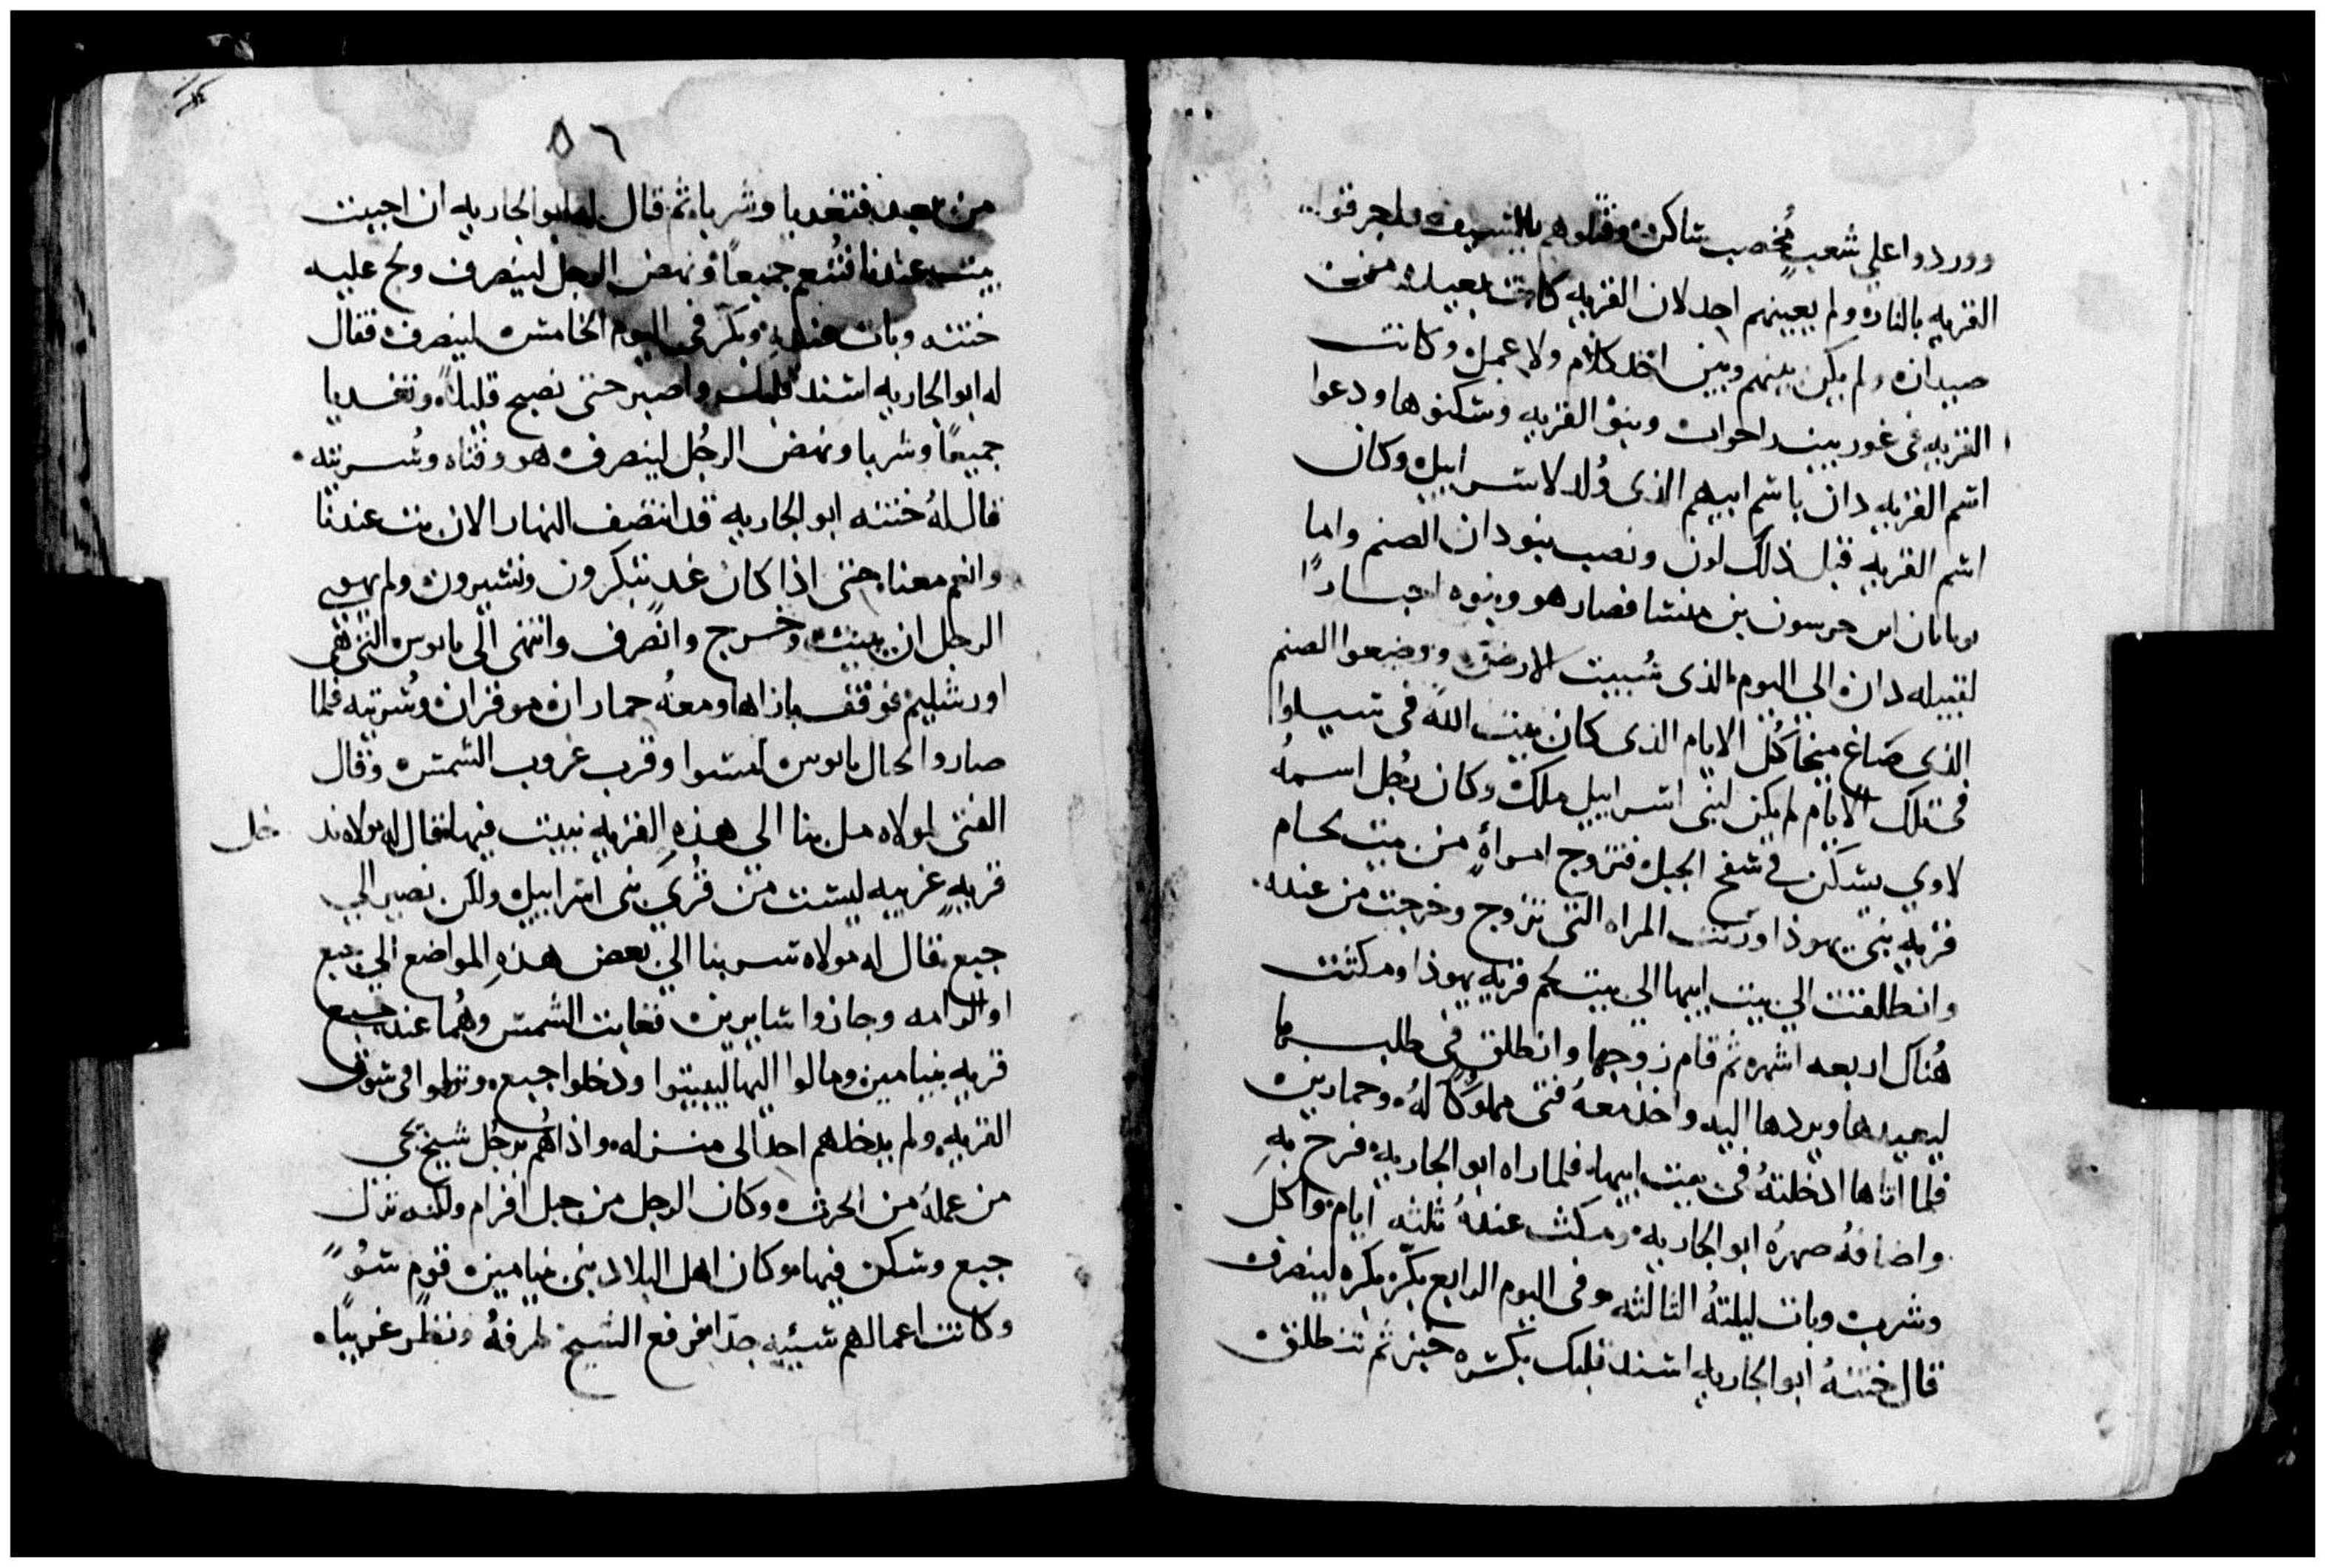 ووردوا علي شعب مخصب ساكن وقتلوهم بالسيف واحرقوا
القريه بالنار ولم يعينهم احد لان القريه كانت بعيده من
صيدان ولم يكن بينهم وبين احد كلام ولا عمل وكانت
القريه في غور بيت راحوات وبنو القريه وسكنوها ودعوا
اسم القريه دان باسم ابيهم الذى ولد لاسراييل وكان
اسم القريه قبل ذلك لون ونصب بنو دان الصنم واما
يوناثان ابن جرسون بن منشا فصار هو وبنوه احبارًا
لقبيله دان الي اليوم الذى سبيت الارض ووضعوا الصنم
الذي صاغ ميخا كُل الايام الذى كان بيت الله فى سيلوا
فى تلك الايام لم يكن لبنى اسراييل ملك وكان رجل اسمه
لاوي يسكن في سفح الجبل فتزوج امراةٍ من بيت لحام
قريه بنى يهوذا وزنت المراه التى تزوج وخرجت من عنده
وانطلقت الي بيت ابيها الي بيت لحم قريه يهوذا ومكثت
هُناك اربعه اشهر ثم قام زوجها وانطلق في طلبها
ليعيدها ويردها اليه واخذ معهُ فتى مملوكًا لهُ وحمارين
فلما اتاها ادخلتهُ فى بيت ابيها فلما راه ابو الجاريه فرح به
واضافهُ صهرهُ ابو الجاريه ومكث عندهُ ثلثه ايام واكل
وشرب وبات ليلتهُ الثالثه وفى اليوم الرابع بكّر بكره لينصرف
قال ختنهُ ابو الجاريه اسند قلبك بكسره خبز ثم تنطلق
٥٦
من بعد فتغديا وشربا ثم قال له ابو الجاريه ان احببت
بيت عندنا فنُنعم جميعاً ونهض الرجل لينصرف ولج عليه
ختنه وبات عنده وبكّر فى اليوم الخامس لينصرف فقال
له ابو الجاريه اسند قلبك واصبر حتى نصبح قليلاً وتغديا
جميعًا وشربا ونهض الرجُل لينصرف هو وفتاه وسُريته
قال لهُ ختنه ابو الجاريه قد انتصف النهار الان بت عندنا
وانعم معنا حتى اذا كان غد تبكرون وتسيرون ولم يهوي
الرجل ان يبيت وخرج وانصرف وانتهى الى يابوس التى هى
اورشليم فوقف بازاها ومعهُ حماران موقران وسُريته فلما
صاروا الحال يابوس امسوا وقرب غروب الشمس وقال
الفتى لمولاه مل بنا الى هذهِ القريه نبيت فيها فقال له مولاه ند خل
قريهٍ غريبه ليست من قُري بنى اسراييل ولكن نصير الي
جبع فقال له مولاه سر بنا الي بعض هذهِ المواضع الي جبع
او الرامه وجازوا سايرين فغابت الشمس وهُما عند جبع
قريه بنيامين ومالوا اليها ليبيتوا ودخلوا جبع ونزلوا فى سوق
القريه ولم يدخلهم احدا الى منزله واذا هُم برجُل شيخ يجى
من عملهُ من الحرث وكان الرجل من جبل افرام ولكنه نزل
جبع وسكن فيها وكان اهل البلاد بنى بنيامين قوم سُوًّ
وكانت اعمالهم سييه جدّا فرفع الشيخ طرفهُ ونظر غريبًا